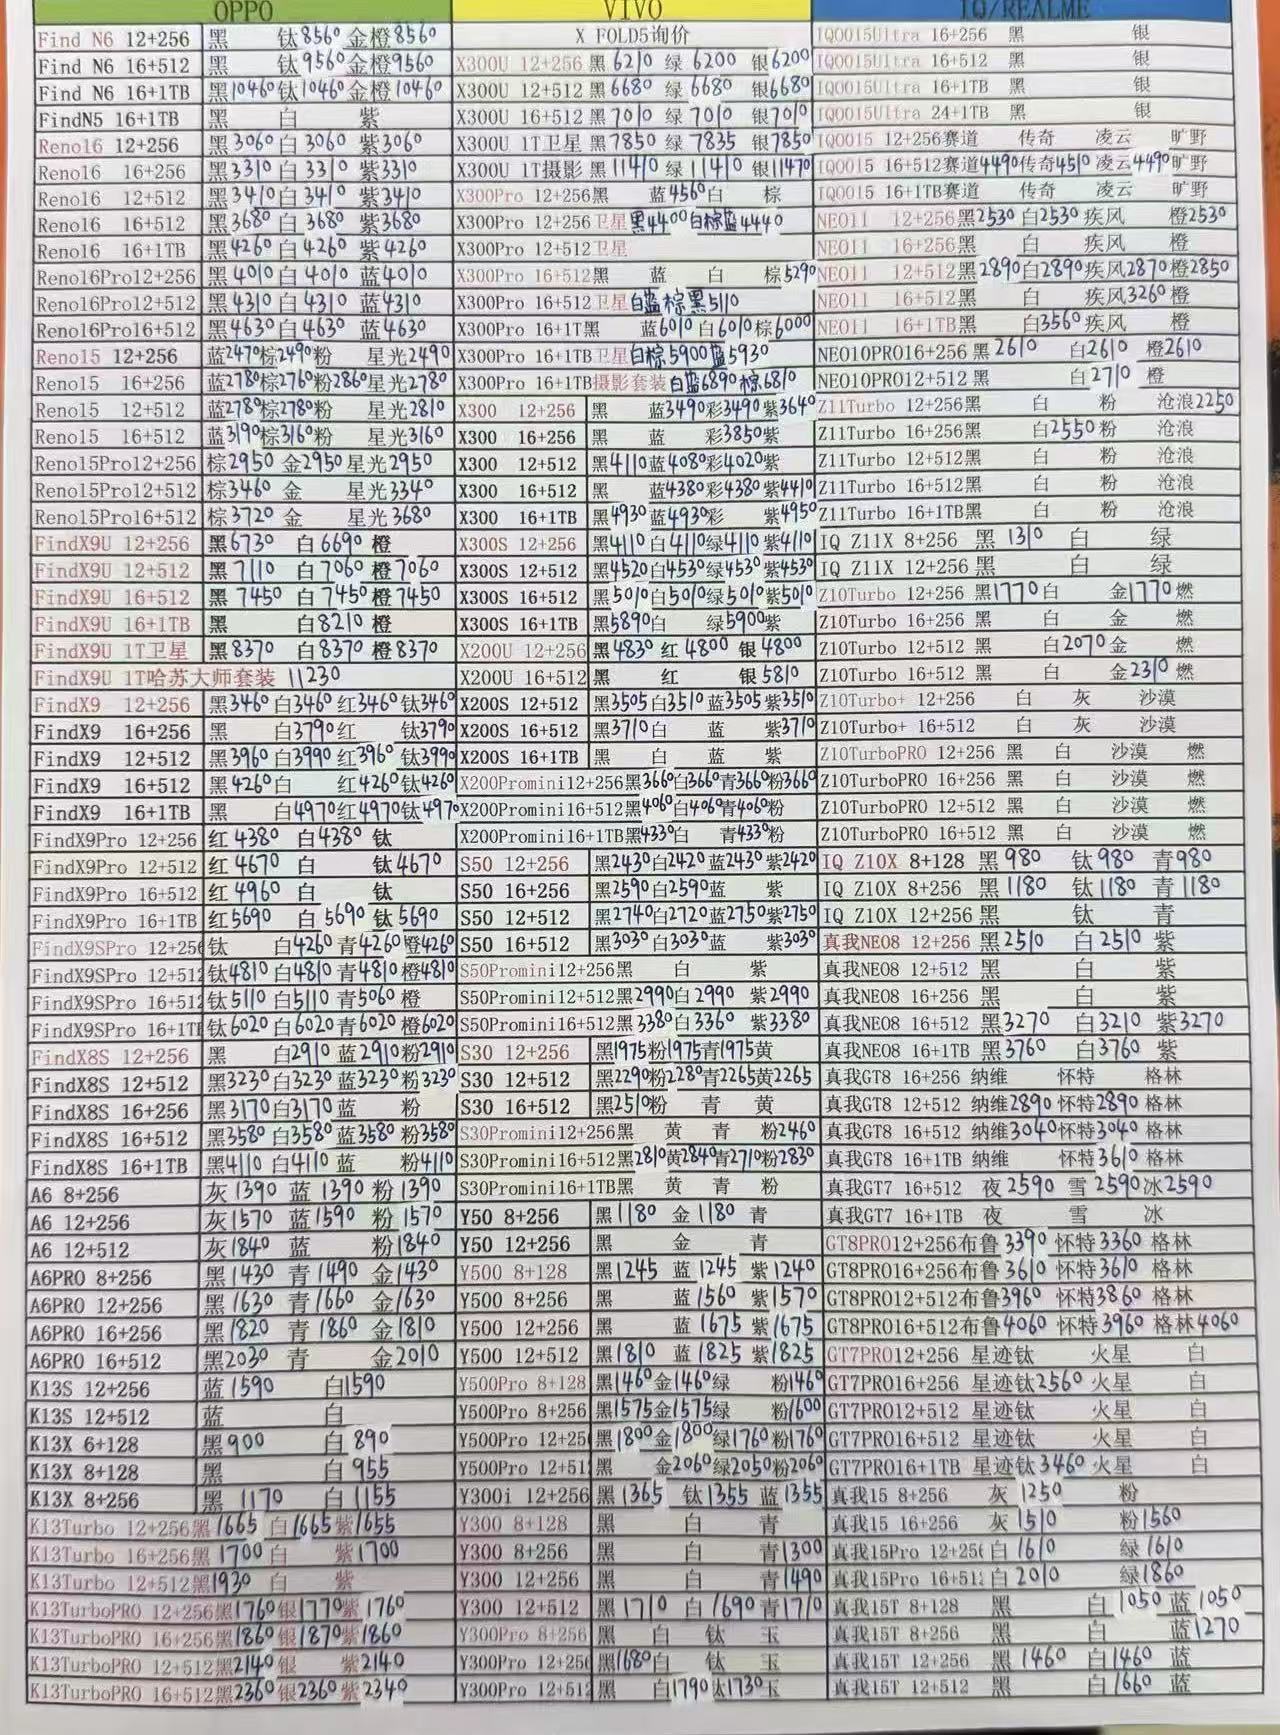 OPPO
Find N6 12+256 黑 钛8560 金橙8560
Find N6 16+512 黑 钛9560 金橙9560
Find N6 16+1TB 黑10460 钛10460 金橙10460
FindN5 16+1TB 黑 白 紫
Reno16 12+256 黑3060 白3060 紫3060
Reno16 16+256 黑3310 白3310 紫3310
Reno16 12+512 黑3410 白3410 紫3410
Reno16 16+512 黑3680 白3680 紫3680
Reno16 16+1TB 黑4260 白4260 紫4260
Reno16Pro12+256 黑4010 白4010 蓝4010
Reno16Pro12+512 黑4310 白4310 蓝4310
Reno16Pro16+512 黑4630 白4630 蓝4630
Reno15 12+256 蓝2470 棕2490 粉 星光2490
Reno15 16+256 蓝2780 棕2760 粉2860 星光2780
Reno15 12+512 蓝2780 棕2780 粉 星光2810
Reno15 16+512 蓝3190 棕3160 粉 星光3160
Reno15Pro12+256 棕2950 金2950 星光2950
Reno15Pro12+512 棕3460 金 星光3340
Reno15Pro16+512 棕3720 金 星光3680
FindX9U 12+256 黑6730 白6690 橙
FindX9U 12+512 黑7110 白7060 橙7060
FindX9U 16+512 黑7450 白7450 橙7450
FindX9U 16+1TB 黑 白8210 橙
FindX9U 1T卫星 黑8370 白8370 橙8370
FindX9U 1T哈苏大师套装 11230
FindX9 12+256 黑3460 白3460 红3460 钛3460
FindX9 16+256 黑 白3790 红 钛3790
FindX9 12+512 黑3960 白3990 红3960 钛3990
FindX9 16+512 黑4260 白 红4260 钛4260
FindX9 16+1TB 黑 白4970 红4970 钛4970
FindX9Pro 12+256 红4380 白4380 钛
FindX9Pro 12+512 红4670 白 钛4670
FindX9Pro 16+512 红4960 白 钛
FindX9Pro 16+1TB 红5690 白5690 钛5690
FindX9SPro 12+256 钛 白4260 青4260 橙4260
FindX9SPro 12+512 钛4810 白4810 青4810 橙4810
FindX9SPro 16+512 钛5110 白5110 青5060 橙
FindX9SPro 16+1TB 钛6020 白6020 青6020 橙6020
FindX8S 12+256 黑 白2910 蓝2910 粉2910
FindX8S 12+512 黑3230 白3230 蓝3230 粉3230
FindX8S 16+256 黑3170 白3170 蓝 粉
FindX8S 16+512 黑3580 白3580 蓝3580 粉3580
FindX8S 16+1TB 黑4110 白4110 蓝 粉4110
A6 8+256 灰1390 蓝1390 粉1390
A6 12+256 灰1570 蓝1590 粉1570
A6 12+512 灰1840 蓝 粉1840
A6PRO 8+256 黑1430 青1490 金1430
A6PRO 12+256 黑1630 青1660 金1630
A6PRO 16+256 黑1820 青1860 金1810
A6PRO 16+512 黑2030 青 金2010
K13S 12+256 蓝1590 白1590
K13S 12+512 蓝 白
K13X 6+128 黑900 白890
K13X 8+128 黑 白955
K13X 8+256 黑1170 白1155
K13Turbo 12+256 黑1665 白1665 紫1655
K13Turbo 16+256 黑1700 白 紫1700
K13Turbo 12+512 黑1930 白 紫
K13TurboPRO 12+256 黑1760 银1770 紫1760
K13TurboPRO 16+256 黑1860 银1870 紫1860
K13TurboPRO 12+512 黑2140 银 紫2140
K13TurboPRO 16+512 黑2360 银2360 紫2340
VIVO
X FOLD5询价
X300U 12+256 黑6210 绿6200 银6200
X300U 12+512 黑6680 绿6680 银6680
X300U 16+512 黑7010 绿7010 银7010
X300U 1T卫星 黑7850 绿7835 银7850
X300U 1T摄影 黑11410 绿11410 银11470
X300Pro 12+256 黑 蓝4560 白 棕
X300Pro 12+256卫星 黑4400 白棕蓝4440
X300Pro 12+512卫星
X300Pro 16+512 黑 蓝 白 棕5290
X300Pro 16+512卫星 白蓝棕黑5110
X300Pro 16+1T 黑 蓝6010 白6010 棕6000
X300Pro 16+1TB卫星 白棕5900 蓝5930
X300Pro 16+1TB摄影套装 白蓝6890 棕6810
X300 12+256 黑 蓝3490 彩3490 紫3640
X300 16+256 黑 蓝 彩3850 紫
X300 12+512 黑4110 蓝4080 彩4020 紫
X300 16+512 黑 蓝4380 彩4380 紫4410
X300 16+1TB 黑4930 蓝4930 彩 紫4950
X300S 12+256 黑4110 白4110 绿4110 紫4110
X300S 12+512 黑4520 白4530 绿4530 紫4530
X300S 16+512 黑5010 白5010 绿5010 紫5010
X300S 16+1TB 黑5890 白 绿5900 紫
X200U 12+256 黑4830 红4800 银4800
X200U 16+512 黑 红 银5810
X200S 12+256 黑3505 白3510 蓝3505 紫3510
X200S 16+512 黑3710 白 蓝 紫3710
X200S 16+1TB 黑 白 蓝 紫
X200Promini12+256 黑3660 白3660 青3660 粉3660
X200Promini16+512 黑4060 白4060 青4060 粉
X200Promini16+1TB 黑4330 白 青4330 粉
S50 12+256 黑2430 白2420 蓝2430 紫2420
S50 16+256 黑2590 白2590 蓝 紫
S50 12+512 黑2740 白2720 蓝2750 紫2750
S50 16+512 黑3030 白3030 蓝 紫3030
S50Promini12+256 黑 白 紫
S50Promini12+512 黑2990 白2990 紫2990
S50Promini16+512 黑3380 白3360 紫3380
S30 12+256 黑1975 粉1975 青1975 黄
S30 12+512 黑2290 粉2280 青2265 黄2265
S30 16+512 黑2510 粉 青 黄
S30Promini12+256 黑 黄 青 粉2460
S30Promini16+512 黑2810 黄2840 青2710 粉2830
S30Promini16+1TB 黑 黄 青 粉
Y50 8+256 黑1180 金1180 青
Y50 12+256 黑 金 青
Y500 8+128 黑1245 蓝1245 紫1240
Y500 8+256 黑 蓝1560 紫1570
Y500 12+256 黑 蓝1675 紫1675
Y500 12+512 黑1810 蓝1825 紫1825
Y500Pro 8+128 黑1460 金1460 绿 粉1460
Y500Pro 8+256 黑1575 金1575 绿 粉1600
Y500Pro 12+25 黑1800 金1800 绿1760 粉1760
Y500Pro 12+51 黑 金2060 绿2050 粉2060
Y300i 12+256 黑1365 钛1355 蓝1355
Y300 8+128 黑 白 青
Y300 8+256 黑 白 青1300
Y300 12+256 黑 白 青1490
Y300 12+512 黑1710 白1690 青1710
Y300Pro 8+256 黑 白 钛 玉
Y300Pro 12+256 黑1680 白 钛 玉
Y300Pro 12+512 黑 白1790 钛1730 玉
IQ/REALME
IQOO15Ultra 16+256 黑 银
IQOO15Ultra 16+512 黑 银
IQOO15Ultra 16+1TB 黑 银
IQOO15Ultra 24+1TB 黑 银
IQOO15 12+256 赛道 传奇 凌云 旷野
IQOO15 16+512 赛道4490 传奇4510 凌云4490 旷野
IQOO15 16+1TB 赛道 传奇 凌云 旷野
NEO11 12+256 黑2530 白2530 疾风 橙2530
NEO11 16+256 黑 白 疾风 橙
NEO11 12+512 黑2890 白2890 疾风2870 橙2850
NEO11 16+512 黑 白 疾风3260 橙
NEO11 16+1TB 黑 白3560 疾风 橙
NEO10PRO16+256 黑2610 白2610 橙2610
NEO10PRO12+512 黑 白2710 橙
Z11Turbo 12+256 黑 白 粉 沧浪2250
Z11Turbo 16+256 黑 白2550 粉 沧浪
Z11Turbo 12+512 黑 白 粉 沧浪
Z11Turbo 16+512 黑 白 粉 沧浪
Z11Turbo 16+1TB 黑 白 粉 沧浪
IQ Z11X 8+256 黑1310 白 绿
IQ Z11X 12+256 黑 白 绿
Z10Turbo 12+256 黑1770 白 金1770 燃
Z10Turbo 16+256 黑 白 金 燃
Z10Turbo 12+512 黑 白2070 金 燃
Z10Turbo 16+512 黑 白 金2310 燃
Z10Turbo+ 12+256 白 灰 沙漠
Z10Turbo+ 16+512 白 灰 沙漠
Z10TurboPRO 12+256 黑 白 沙漠 燃
Z10TurboPRO 16+256 黑 白 沙漠 燃
Z10TurboPRO 12+512 黑 白 沙漠 燃
Z10TurboPRO 16+512 黑 白 沙漠 燃
IQ Z10X 8+128 黑980 钛980 青980
IQ Z10X 8+256 黑1180 钛1180 青1180
IQ Z10X 12+256 黑 钛 青
真我NEO8 12+256 黑2510 白2510 紫
真我NEO8 12+512 黑 白 紫
真我NEO8 16+256 黑 白 紫
真我NEO8 16+512 黑3270 白3210 紫3270
真我NEO8 16+1TB 黑3760 白3760 紫
真我GT8 16+256 纳维 怀特 格林
真我GT8 12+512 纳维2890 怀特2890 格林
真我GT8 16+512 纳维3040 怀特3040 格林
真我GT8 16+1TB 纳维 怀特3610 格林
真我GT7 16+512 夜2590 雪2590 冰2590
真我GT7 16+1TB 夜 雪 冰
GT8PRO12+256 布鲁3390 怀特3360 格林
GT8PRO16+256 布鲁3610 怀特3610 格林
GT8PRO12+512 布鲁3960 怀特3860 格林
GT8PRO16+512 布鲁4060 怀特3960 格林4060
GT7PRO12+256 星迹钛 火星 白
GT7PRO16+256 星迹钛2560 火星 白
GT7PRO12+512 星迹钛 火星 白
GT7PRO16+512 星迹钛 火星 白
GT7PRO16+1TB 星迹钛3460 火星 白
真我15 8+256 灰1250 粉
真我15 16+256 灰1510 粉1560
真我15Pro 12+256 白1610 绿1610
真我15Pro 16+512 白2010 绿1860
真我15T 8+128 黑 白1050 蓝1050
真我15T 8+256 黑 白 蓝1270
真我15T 12+256 黑1460 白1460 蓝
真我15T 12+512 黑 白1660 蓝